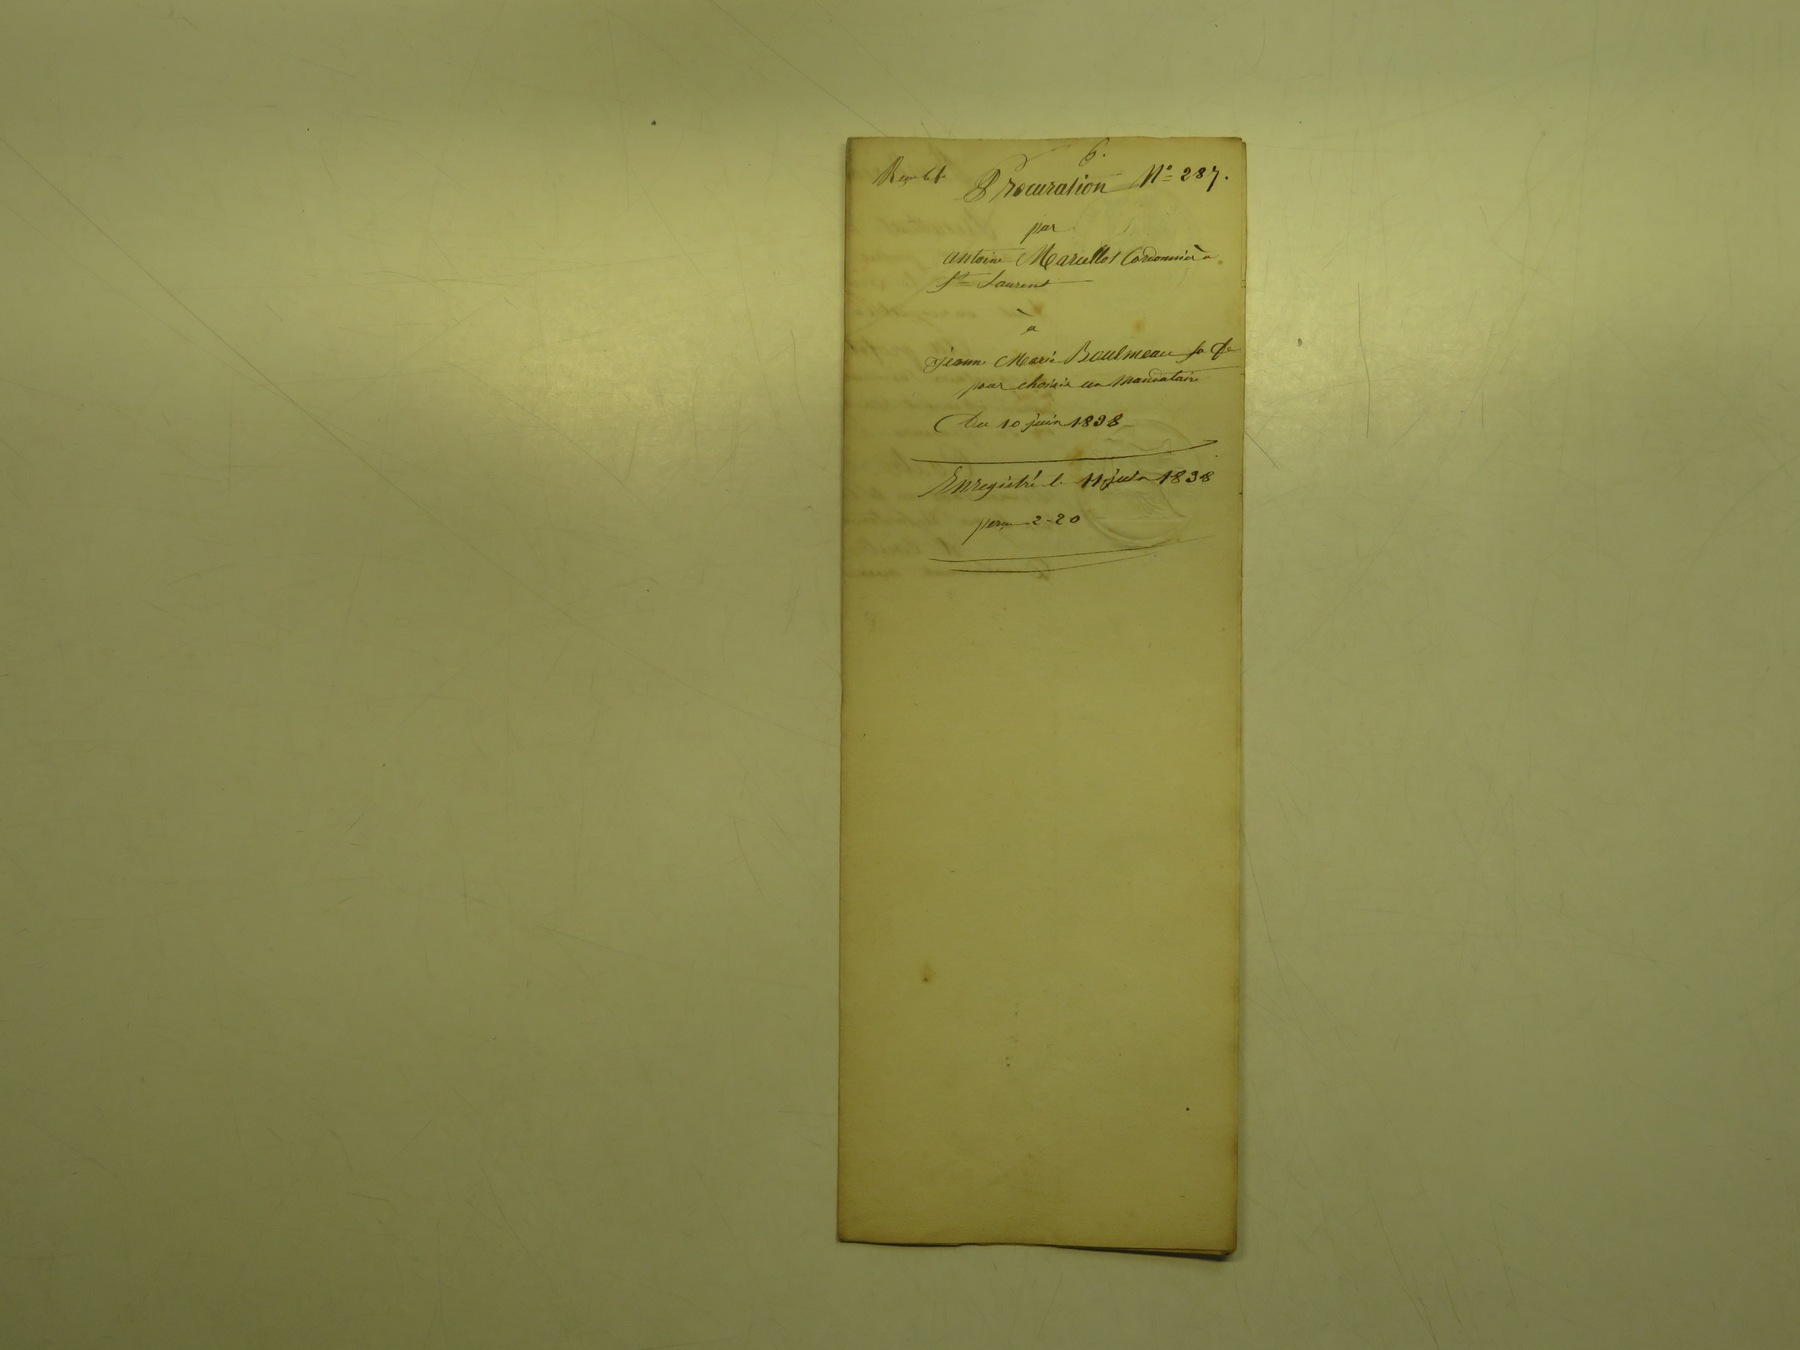 6.
Procuration N° 287.
par
antoine Marcellot Cordonnier à
St Laurent
à
jeanne Marie Boulmeau sa fe
pour choisir un mandataire
Du 10 juin 1838
Enregistré le 11 juin 1838
perçu 2-20